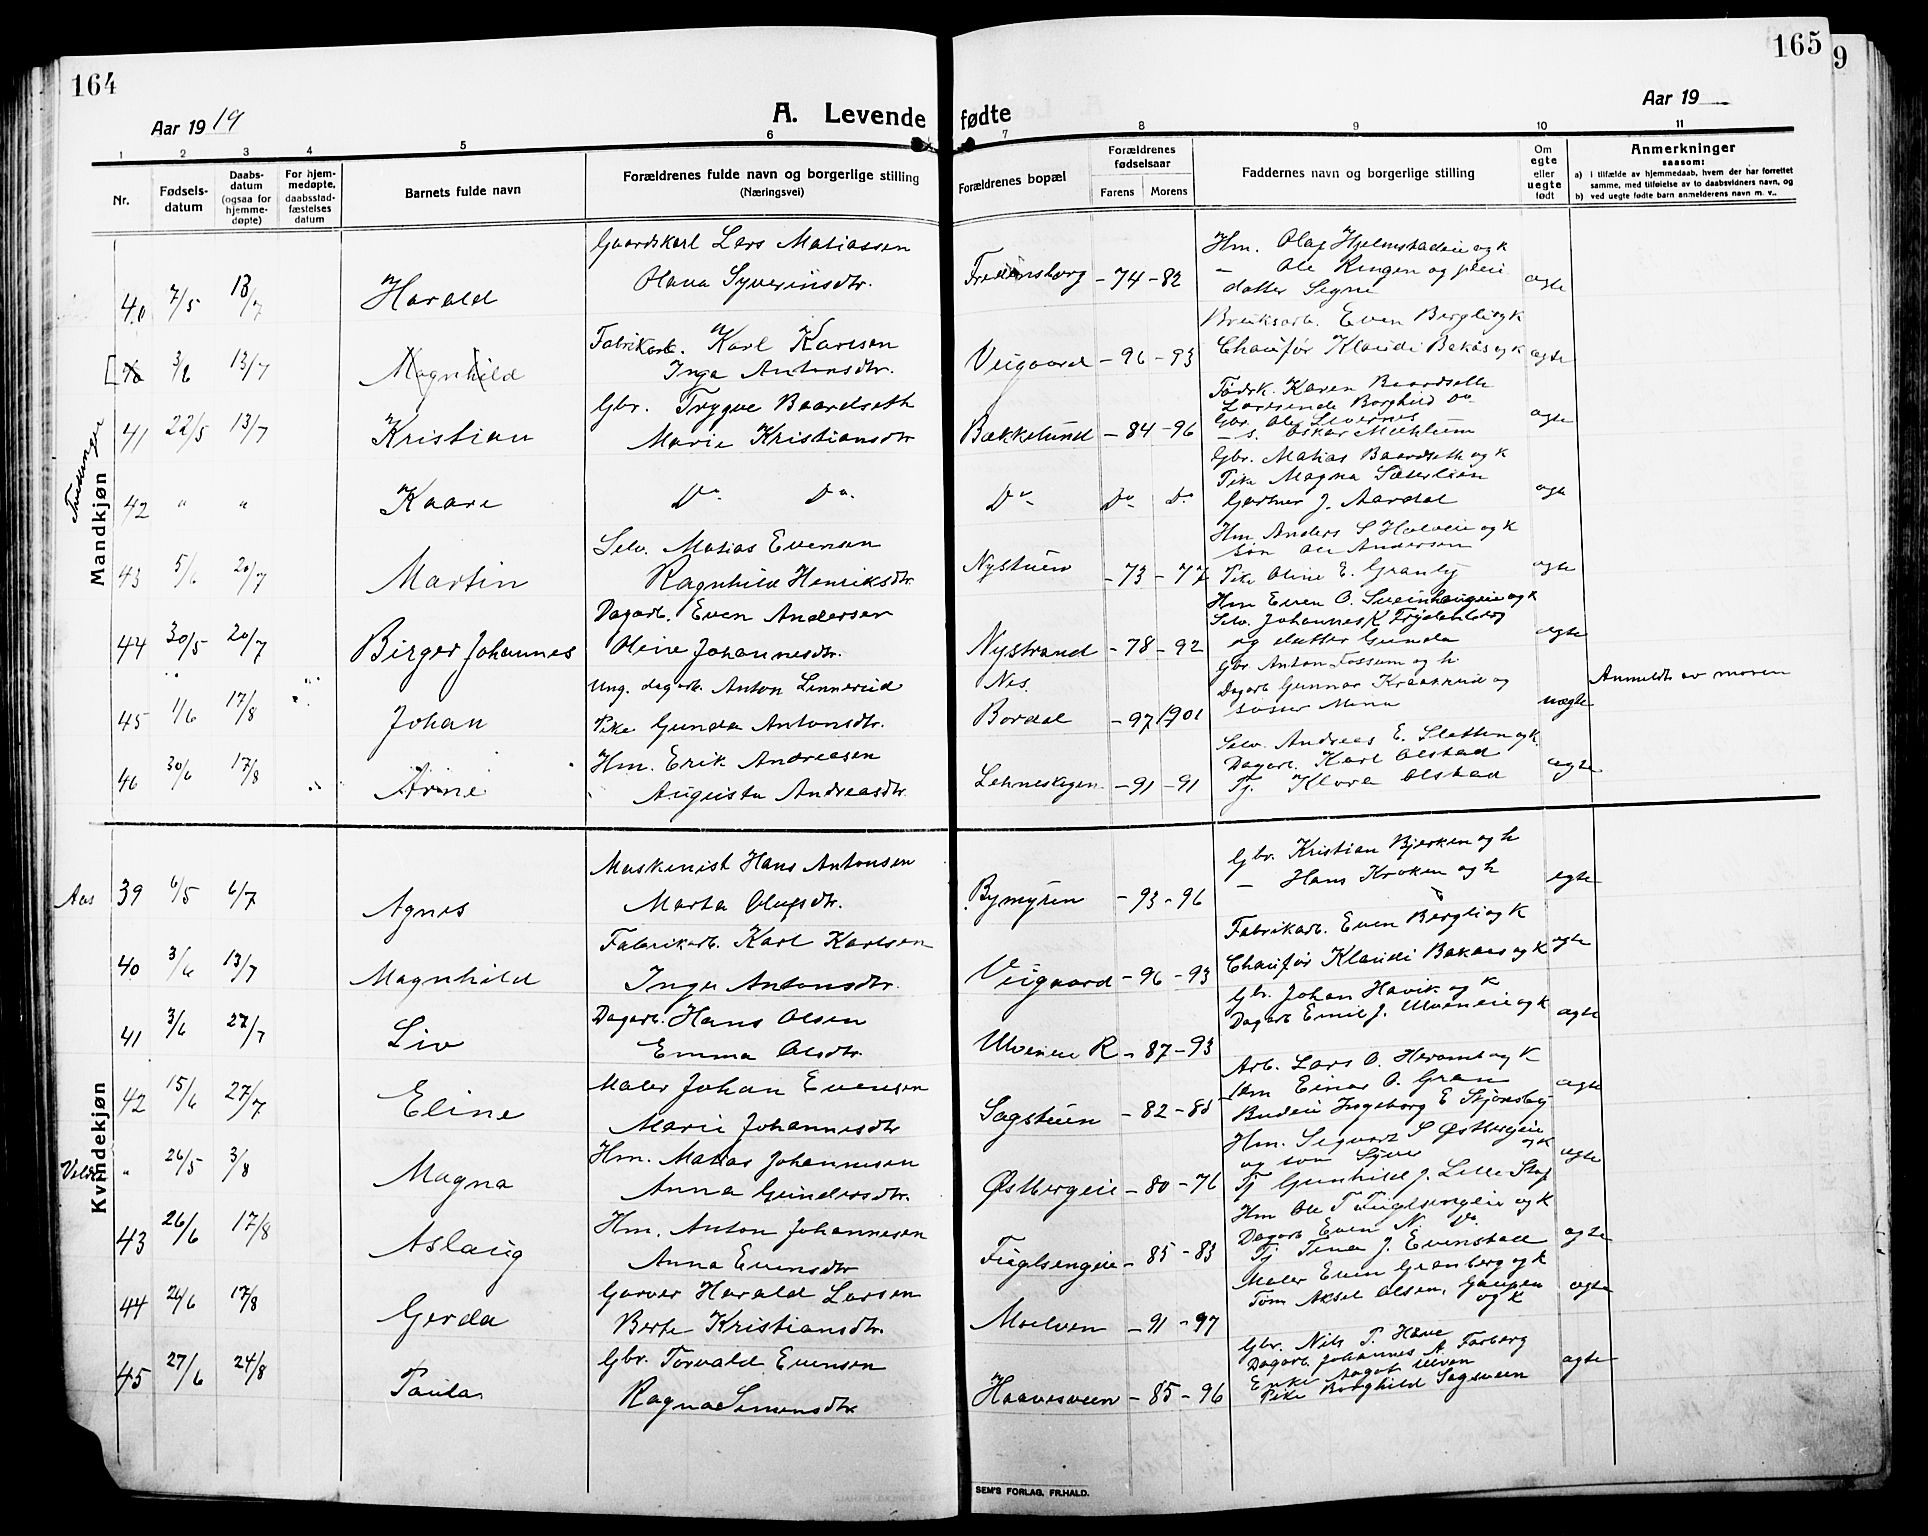 164
165
9
Aar 1919
A. Levende fødte
Aar 19
1 2 3 4 5 6 7 8 9 10 11
Nr.
Fødsels-datum
Daabs-datum (ogsaa for hjemme-døpte)
For hjem-medøpte, daabsstad-fæstelses datum
Barnets fulde navn
Forældrenes fulde navn og borgerlige stilling
(Næringsvei)
Forældrenes bopæl
Forældrenes fødselsaar
Farens Morens
Faddernes navn og borgerlige stilling
Om egte eller uegte født
Anmerkninger
saasom:
a) i tilfælde av hjemmedaab, hvem der har forrettet samme, med tilføielse av to daabsvidners navn, og
b) ved uegte fødte barn anmelderens navn m. v..
Mandkjøn
Tvillinger
40 7/5 13/7 Harald
Gaardskarl Lars Matiassen
Olava Syverinsdtr.
Fredensborg -74 -82
Hm. Olaf Hjelmstadeie og k
- Ole Ringen og pleie
datter Signe
egte
40 3/6 13/7 Magnhild
Fabrikarb. Karl Karlsen
Inga Antonsdtr.
Veigaard -96 -93
Bruksarb. Even Bergli og k
Chaufør Klaudi Bakaas og k
egte
41 22/5 13/7 Kristian
Gbr. Trygve Baardseth
Marie Kristiansdtr
Bækkelund -84 -96
Karen Baardseth
Borghild Do
Gbr. Ole
- s. Oskar Mæhlum
egte
42 " " Kaare
Do Do.
Do Do Do
Gbr. Matias Baardseth og k
Pike Magna Sæterlien
Gartner J. Aardal
egte
43 5/6 20/7 Martin
Selv. Matias Evensen
Ragnhild Henriksdtr
Nystuen -73 -77
Hm Anders S Holveie og k
søn Ole Andersen
Pike Oline E. Granly
egte
44 30/5 20/7 Birger Johannes
Dagarb. Even Andersen
Oline Johannesdtr.
Nystrand -78 -92
Hm Even O. Sveinhaugeie og k
Selv. Johannes K Frydenberg
og datter Gunda
egte
45 1/6 17/8 Johan
Ung. dagarb. Anton Linnerud
Pike Gunda Antonsdtr.
Nes.
Bordal -97 1901
Gbr Anton Fossum og h
Dagarb Gunnar Kraakrud og
søster Mina
uegte
Anmeldt av moren
46 30/6 17/8 Arne
Hm. Erik Andreasen
Augusta Andreasdtr.
Lehneskogen -91 -91
Selv. Andreas E. Sletten og k.
Dagarb. Karl Olstad
Tj. Klara Olstad
egte
Kvindekjøn
Aas 39 6/5 6/7 Agnes
Maskinist Hans Antonsen
Marta Olufsdtr.
Bymyren -93 -96
Gbr. Kristian Bjerken og h
- Hans Kroken og h
egte
40 3/6 13/7 Magnhild
Fabrikarb. Karl Karlsen
Inga Antonsdtr.
Veigaard -96 -93
Fabrikarb. Even Bergli og k
Chaufør Klaudi Bakaas og k
egte
41 3/6 27/7 Liv
Dagarb. Hans Olsen
Emma Olsdtr.
Ulveneie R -87 -93
Gbr. Johan Havik og k
Dagarb Emil J. Ulveneie og k
egte
42 15/6 27/7 Eline
Maler Johan Evensen
Marie Johannesdtr
Sagstuen -82 -85
Arb. Lars O. og k
Um Einar O. Gran
Budeie Ingeborg E Skjønsby
egte
" 26/5 3/8 Magna
Hm. Matias Johannesen
Anna Gundersdtr.
Østbergeie -80 -76
Hm. Sigvart S Østbergeie
og k
og søn Syver
Tj Gunhild J. Lille Skof
egte
43 26/6 17/8 Aslaug
Hm. Anton Johannesen
Anna Evensdtr
Fuglsengeie -85 -83
Hm Ole T Fuglsengeie og k
Dagarb Even N. Do
Tj Tina J. Evenstad
egte
44 26/6 17/8 Gerda
Garver Harald Larsen
Berte Kristiansdtr.
Moelven -91 -97
Maler Even Granberg og k
Tøm Aksel Olsen, Gaupen
og k
egte
45 27/6 24/8 Paula
Gbr. Torvald Evensen
Ragna Simensdtr
Haavesveen -85 -96
Gbr. Nils P. Have
Dagarb. Johannes A. Farberg
Enke Aagot Ulven
Pike Borghild Sagsveen
egte
SEM'S FORLAG, FR.HALD.